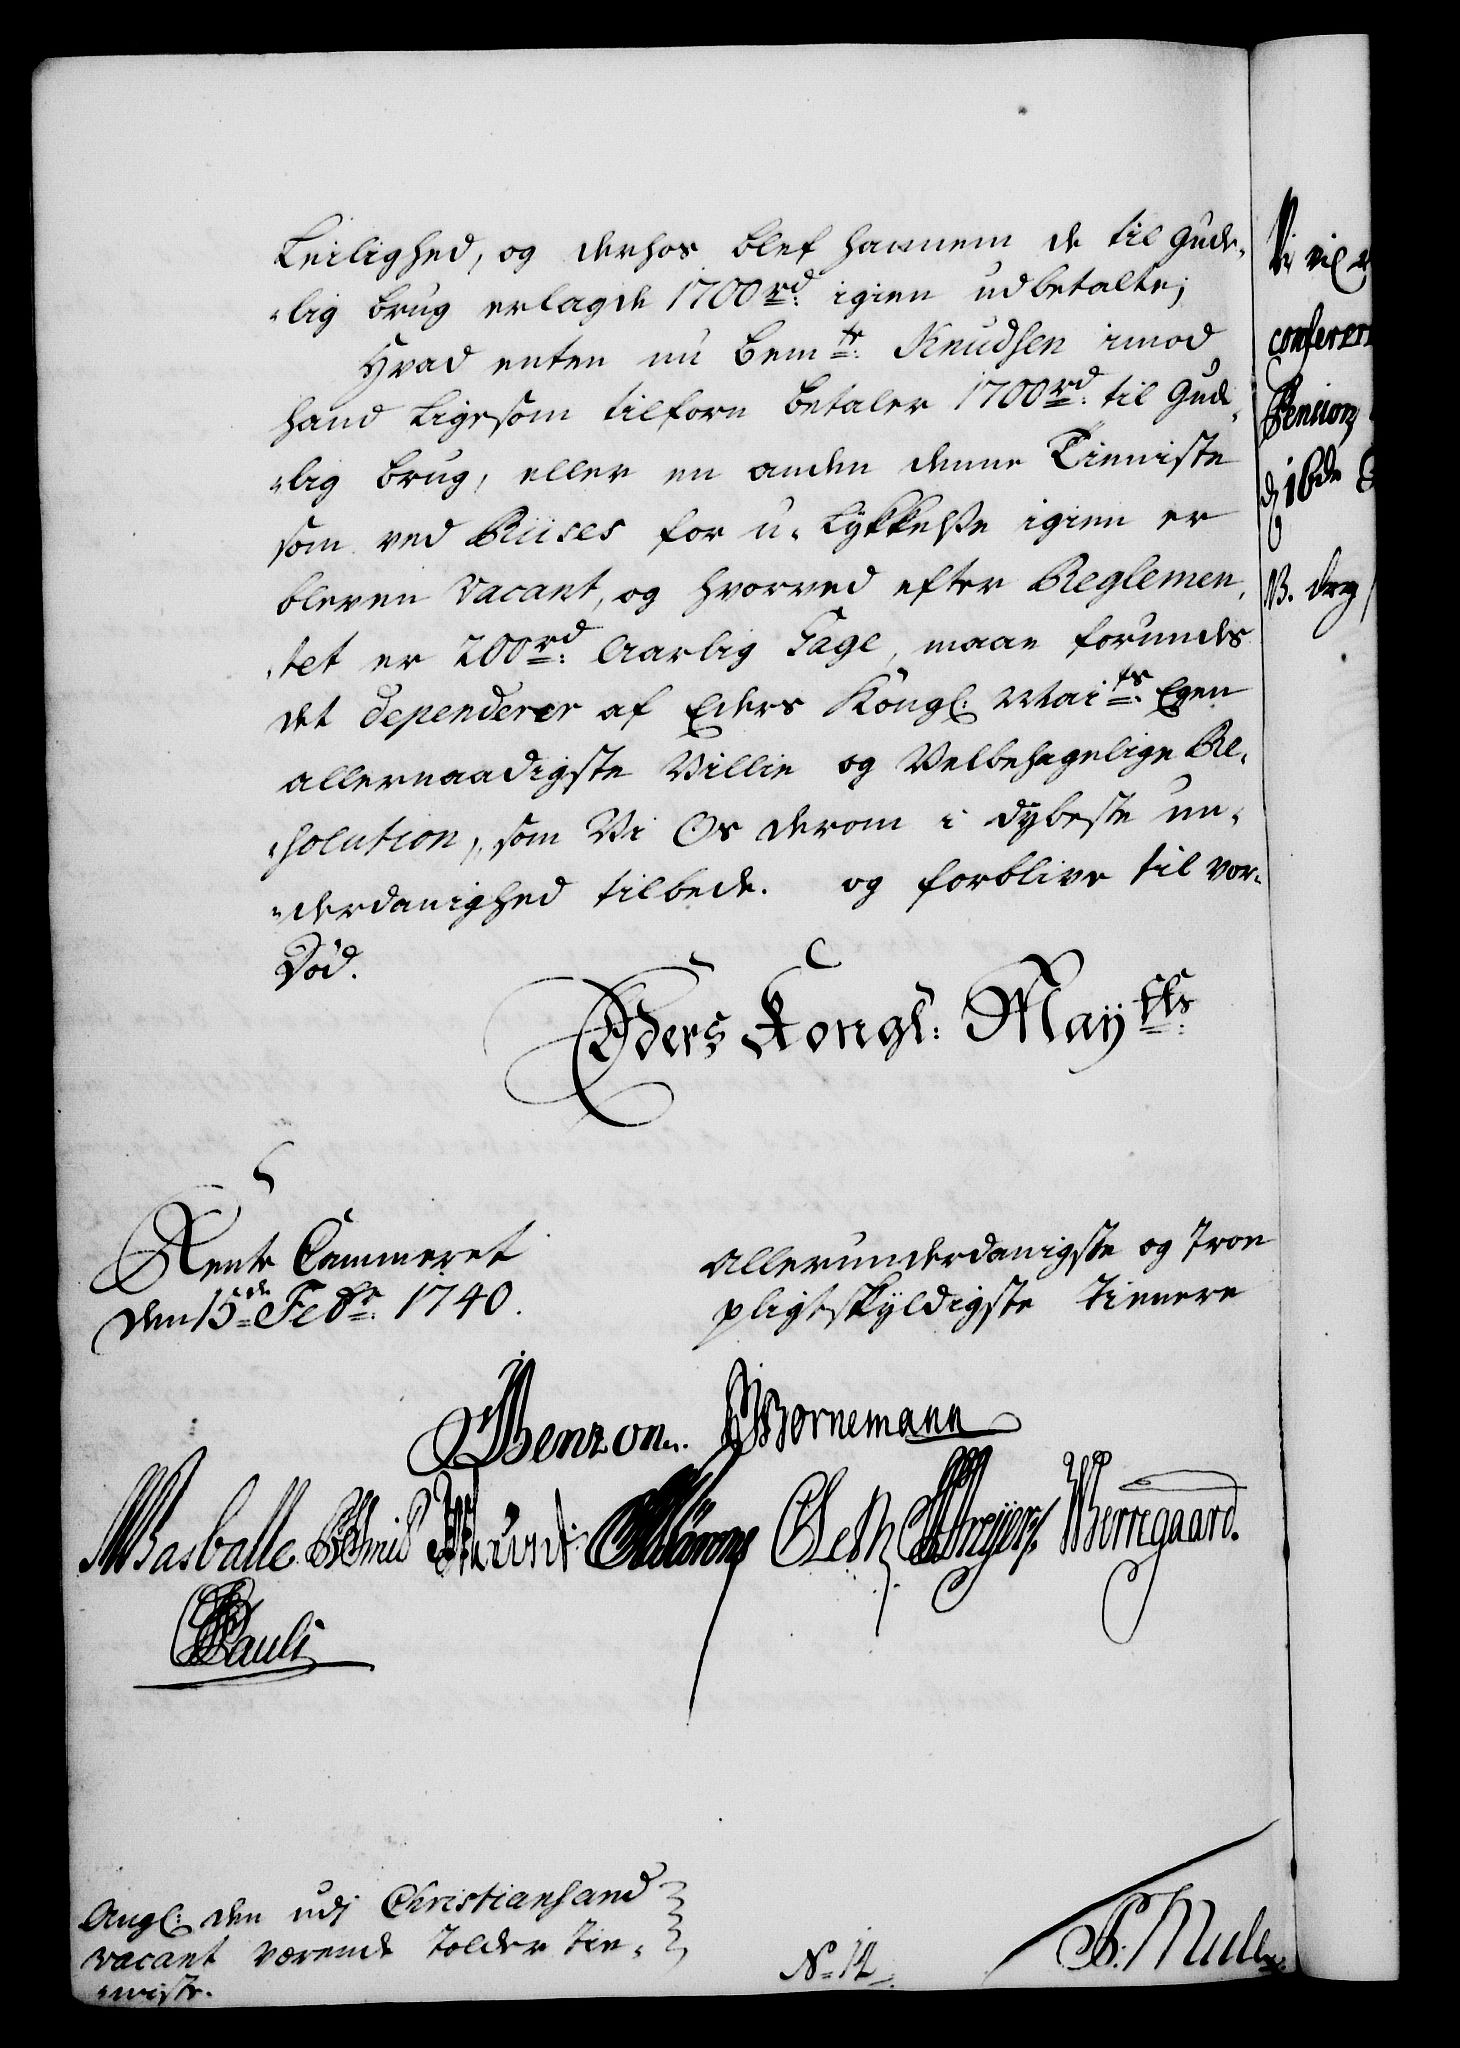 Leilighed, og derhos blef hannem de til Gude-
-lig brug erlagde 1700 rd: igien udbetalte;
Hvad enten nu bem:te Knudsen imod
hand Ligesom tilforn betaler 1700 rd: til Gude-
-lig brug, eller en anden denne Tieniste
som ved Riises for u-Lykkelse igien er
bleven vacant, og hvorved efter Reglemen-
-tet er 200 rd: Aarlig Gage, maae forundes
det dependerer af Eders Kongl: Mai:ts Egen
allernaadigste Villie og Velbehagelige Re-
-solution, som Vi Os derom i dybeste un-
-derdanighed tilbede. og forblive til vor-
Död.
Eders Kongl: May:tts
Rente Cammeret
den 15de Febr: 1740.
Allerunderdanigste og Troe
pligtskyldigste Tienere
Benzon. Bornemann
Basballe. Schmid Körong Meyer Werregaard.
Pauli
Angl: den udj Christiansand
vacant værende Tolder Tie-
-niste.
No 12.
Müller
Vi vil
conferer
Pension
d 16de